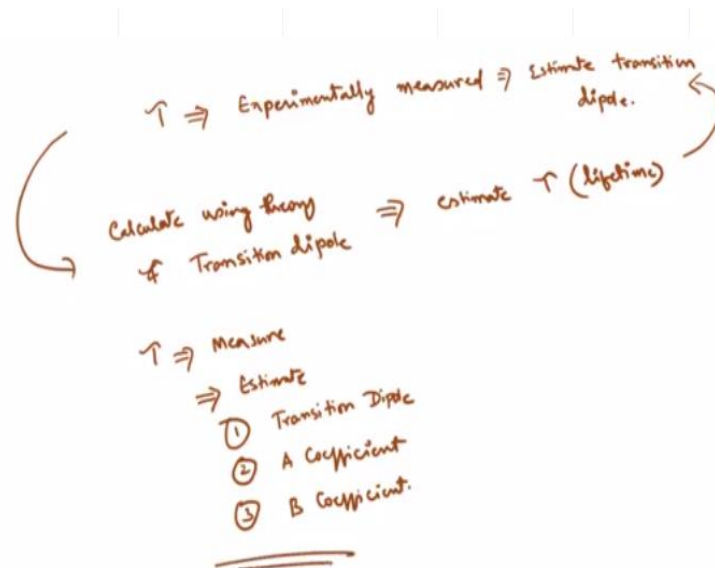 τ ⇒ Experimentally measured ⇒ Estimate transition
dipole.
Calculate using theory ⇒ estimate τ (lifetime)
of Transition dipole
τ ⇒ Measure
⇒ Estimate
① Transition Dipole
② A Coefficient
③ B Coefficient.